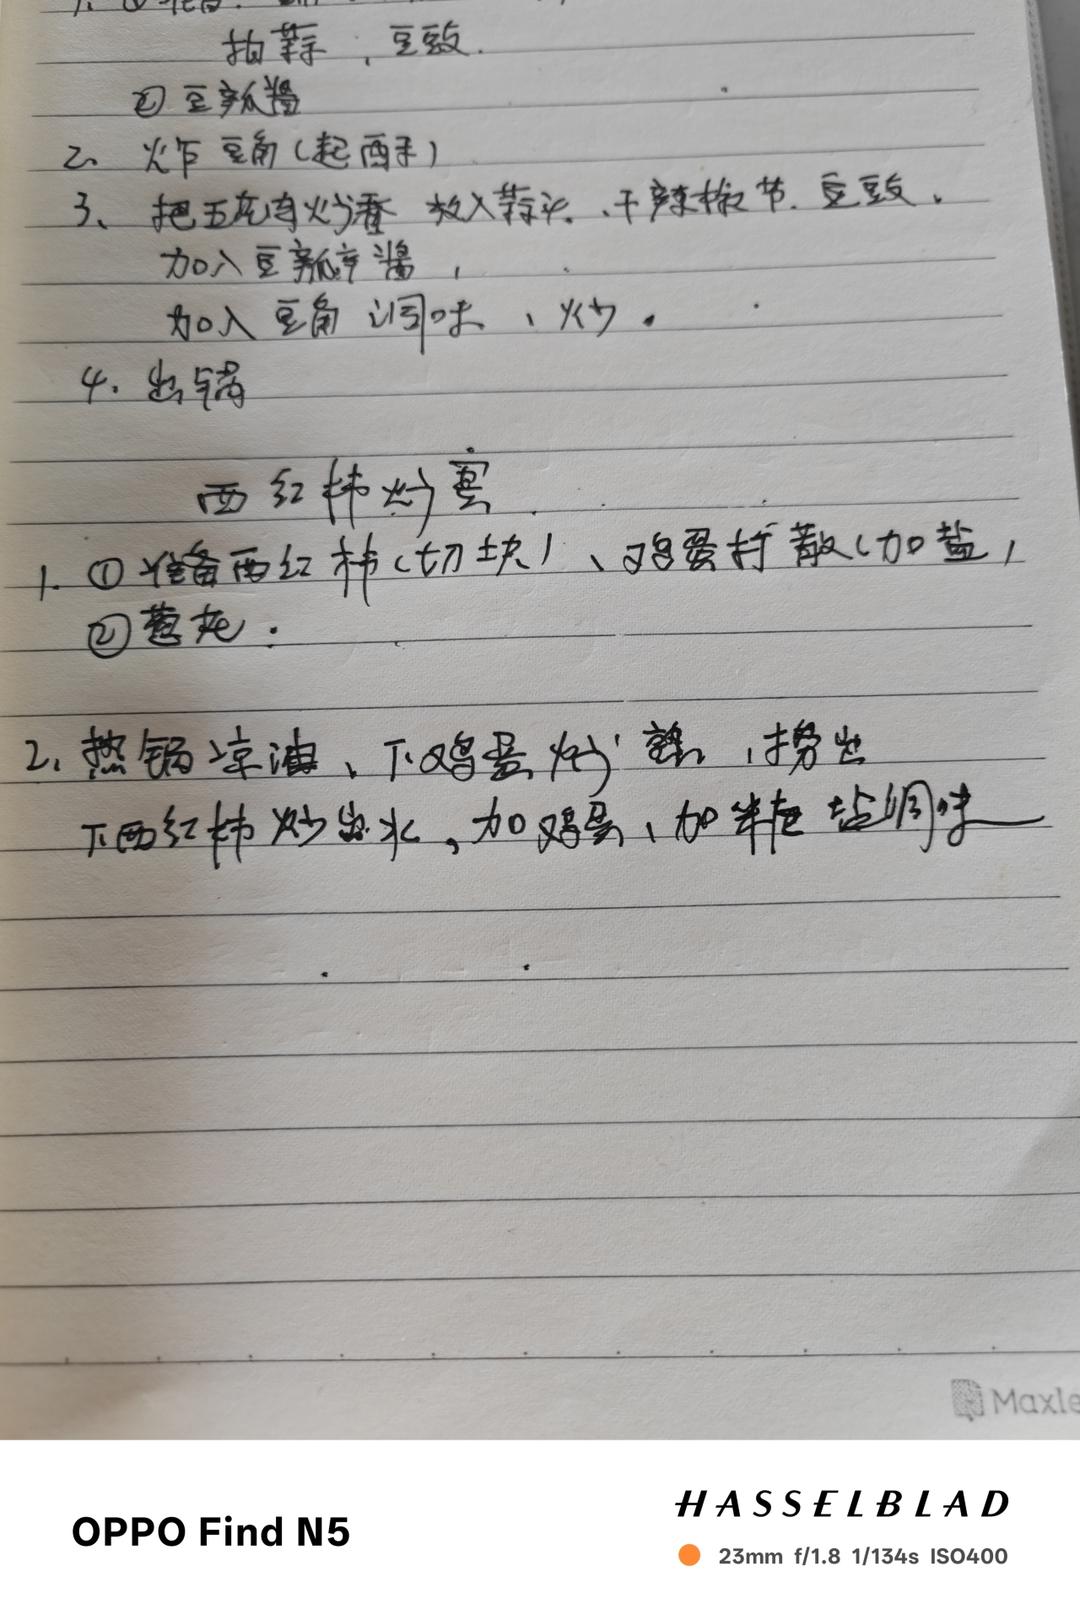 1. ①准备:
拍蒜,豆豉.
② 豆瓣酱
2、炸豆角(起酥)
3、把五花肉炒香 放入蒜头、干辣椒节、豆豉、
加入豆瓣酱,
加入豆角调味、炒.
4. 出锅
西红柿炒蛋
1. ①准备西红柿(切块)、鸡蛋打散(加盐)
②葱花.
2、热锅凉油、下鸡蛋炒熟、捞出
下西红柿炒出水,加鸡蛋、加半匙盐调味
Maxle
OPPO Find N5
HASSELBLAD
23mm f/1.8 1/134s ISO400